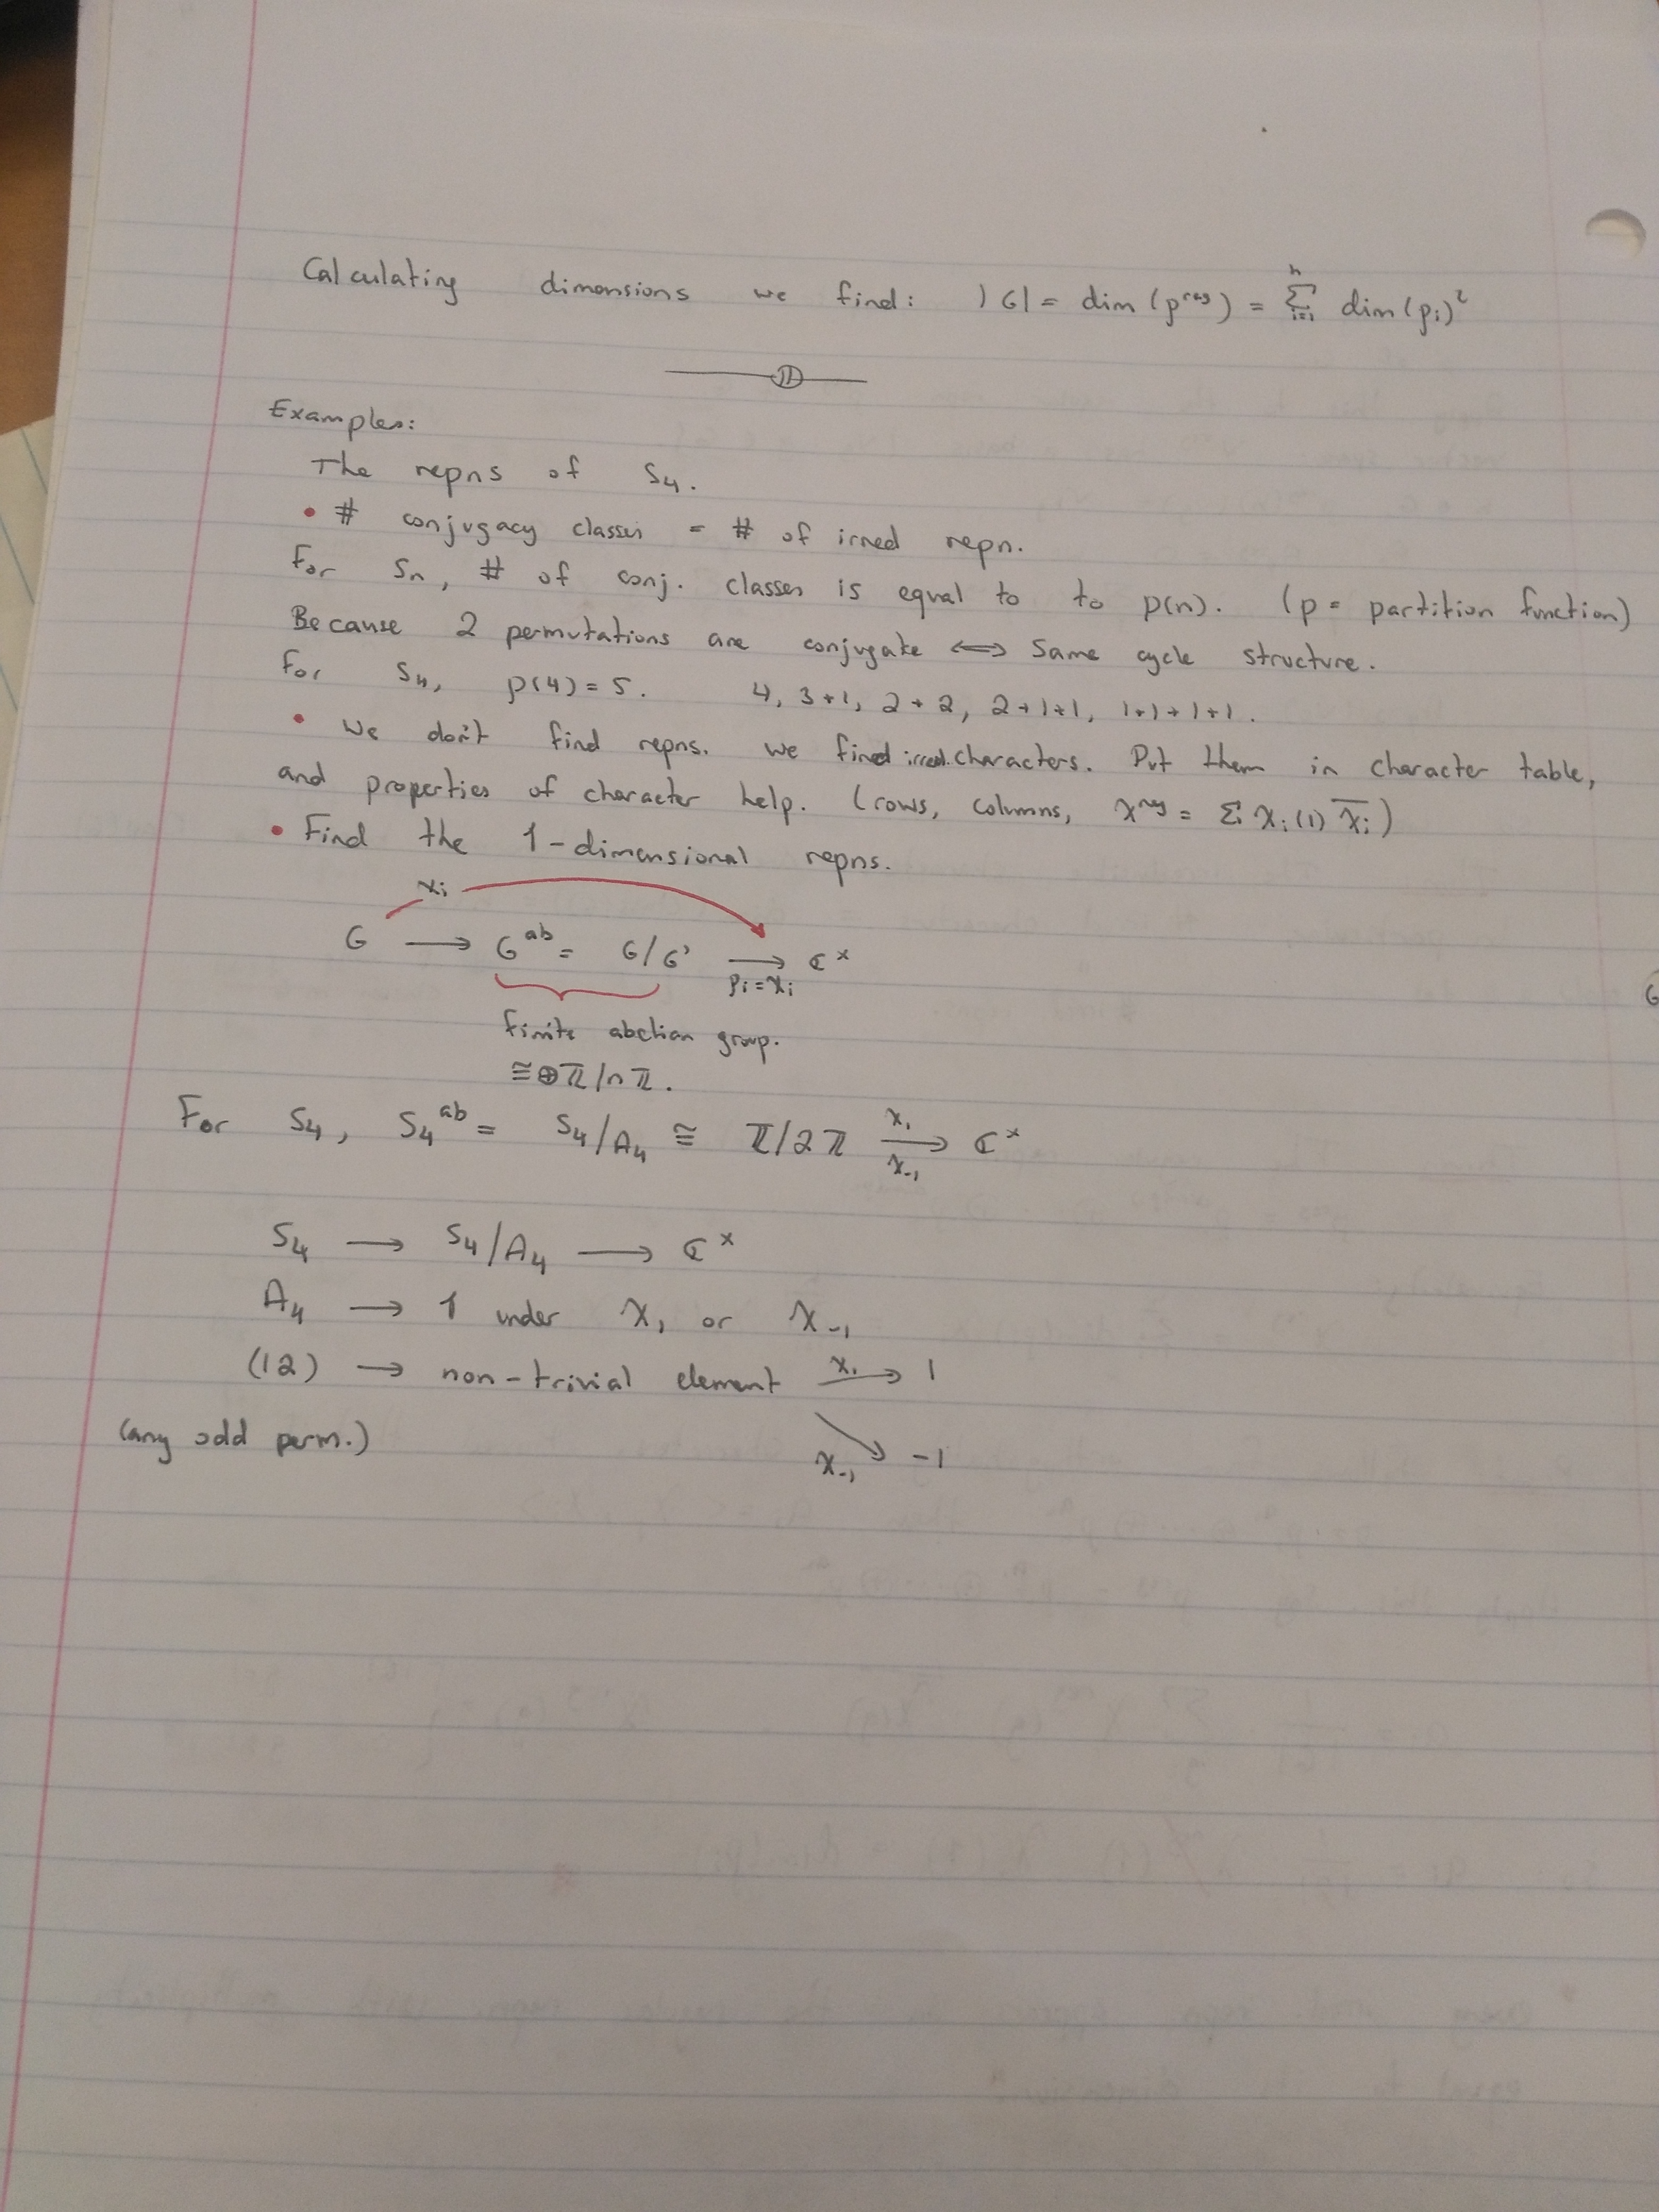 Calculating dimensions we find: |G| = dim(ρ^reg) = Σ_{i=1}^{h} dim(ρ_i)^2
Examples:
The repns of S_4.
• # conjugacy classes = # of irred repn.
For S_n, # of conj. classes is equal to to p(n). (p = partition function)
Because 2 permutations are conjugate ⟺ Same cycle structure.
For S_4, p(4) = 5. 4, 3+1, 2+2, 2+1+1, 1+1+1+1.
• We don't find repns. we find irred. characters. Put them in character table,
and properties of character help. (rows, columns, χ^reg = Σ_i χ_i(1) \overline{χ_i})
• Find the 1-dimensional repns.
χ_i
G ⟶ G^ab = G/G' ⟶ ℂ^×
ρ_i = χ_i
finite abelian group.
≅ ⊕ℤ/nℤ.
For S_4, S_4^ab = S_4/A_4 ≅ ℤ/2ℤ ⟶ ℂ^×
χ_1
χ_-1
S_4 ⟶ S_4/A_4 ⟶ ℂ^×
A_4 ⟶ 1 under χ_1 or χ_-1
(12) ⟶ non-trivial element χ_1 ⟶ 1
(any odd perm.) χ_-1 ↘ -1